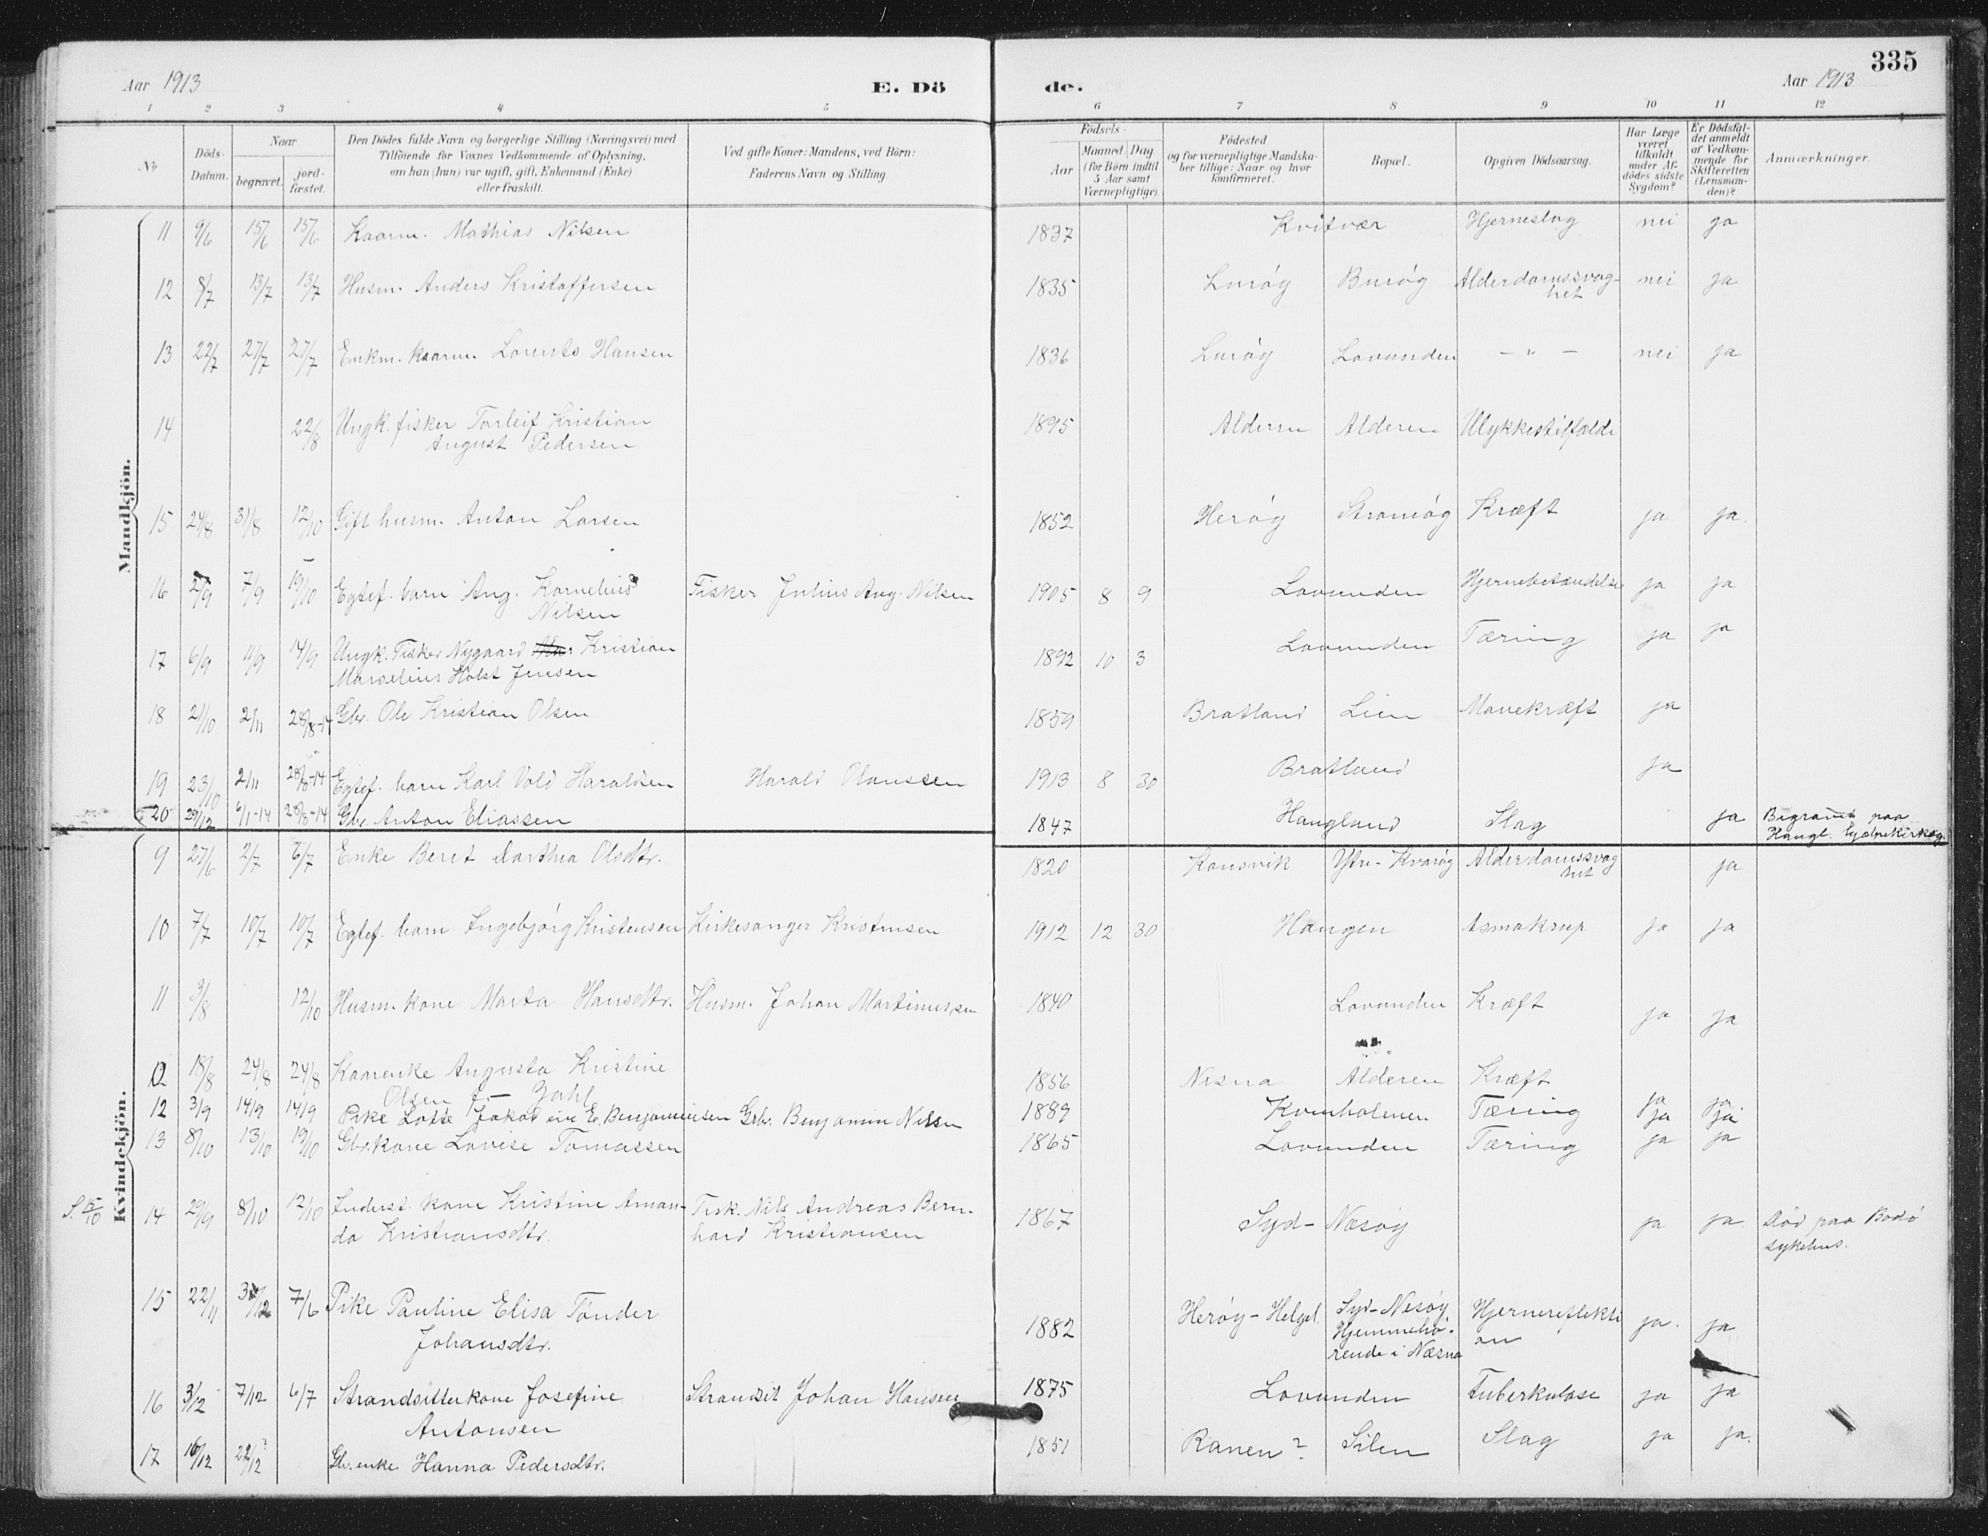 335
Aar 1913 E. Dö de. Aar 1913
1 2 3 4 5 6 7 8 9 10 11 12
No Döds-Datum. Naar begravet. jordfæstet. Den Dödes fulde Navn og borgerlige Stilling (Næringsvei) med Tilföiende for Voxnes Vedkommende af Oplysning, om han (hun) var ugift, gift, Enkemand (Enke) eller fraskilt. Ved gifte Koner: Mandens, ved Börn: Faderens Navn og Stilling. Födsels- Aar Maaned. Dag. (for Börn indtil 5 Aar samt Værnepligtige). Födested og for værnepligtige Mandskaber tillige: Naar og hvor konfirmeret. Bopæl. Opgiven Dödsaarsag. Har Læge været tilkaldt under Afdödes sidste Sygdom? Er Dödsfaldet anmeldt af Vedkommende for Skifteretten (Lensmanden)? Anmærkninger.
Mandkjön.
11 9/6 15/6 15/6 Kaarm. Mathias Nilsen 1837 Kvitvær Hjerneslag nei ja
12 8/7 13/7 13/7 Husm. Anders Kristoffersen 1835 Lurøy Burøy Alderdomssvag-
het nei ja
13 22/7 27/7 27/7 Enkm. kaarm. Lorents Hansen 1836 Lurøy Lovunden – " – nei ja
14 22/8 Ungk. fisker Torleif Kristian
August Pedersen 1895 Alderen Alderen Ulykkestilfælde
15 24/8 31/8 12/10 Gift husm. Anton Larsen 1852 Herøy Stromøy Kræft ja ja.
16 2/9 7/9 19/10 Egtef. barn Aug. Kornelius
Nilsen Fisker Julius Aug. Nilsen 1905 8 9 Lovunden Hjernebetændelse ja ja
17 6/9 11/9 14/9 Ungk. Fisker Nygaard Kristian
Marselius Holst Jensen 1892 10 3 Lovunden Tæring ja ja
18 21/10 2/11 28/8-14 Gbr. Ole Kristian Olsen 1859 Bratland Lien Mavekræft ja
19 23/10 2/11 28/8-14 Egtef. barn Karl Vold Haraldsen Harald Olaussen 1913 8 30 Bratland ja
20 29/12 6/1-14 28/8-14 Gbr. Anton Eliassen 1847 Haugland Slag ja Begravet paa
Haugl. hjælpekirkeg.
Kvindekjön.
9 27/6 2/7 6/7 Enke Beret Dorthea Olsdtr. 1820 Konsvik Ytre-Kvarøy Alderdomssvag
het ja
10 7/7 10/7 10/7 Egtef. barn Ingebjørg Kristensen Kirkesanger Kristensen 1912 12 30 Haugen Asmakrup ja ja
11 3/8 12/10 Husm. kone Marta Hansdtr. Husm. Johan Martinussen 1840 Lovunden Kræft ja ja
12 18/8 24/8 24/8 Kaarenke Augusta Kristine
Olsen f. Zahl 1856 Nesna Alderen Kræft ja ja
12 3/9 14/9 14/9 Pike Lotte Jakobine E. Benjaminsen Gbr. Benjamin Nilsen 1889 Kvinholmen Tæring ja ja
13 8/10 13/10 19/10 Gbr.kone Lovise Tomassen 1865 Lovunden Tæring ja ja
S. 15/10 14 29/9 8/10 12/10 Inderst. kone Kristine Aman-
da Kristiansdtr. Fisk. Nils Andreas Bern-
hard Kristiansen 1867 Syd-Nesøy ja ja. Død paa Bodø
sykehus.
15 22/11 3/12 7/6 Pike Pauline Elisa Tønder
Johansdtr. 1882 Herøy-Helgel. Syd-Nesøy
Hjemmehø-
rende i Næsna Hjernereflekti
on ja. ja
16 3/12 7/12 6/7 Strandsitterkone Josefine
Antonsen Strandsit Johan Hansen 1875 Lovunden Tuberkulose ja ja
17 16/12 22/12 Gbr. enke Hanna Pedersdtr. 1851 Ranen? Silen Slag ja ja.